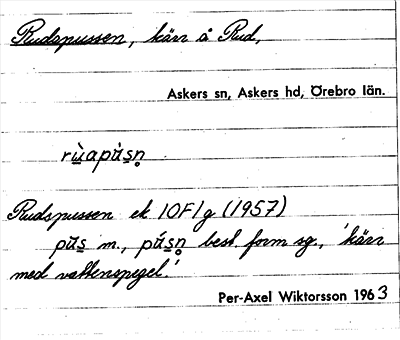 Rudspussen, kärr å Rud,
Askers sn, Askers hd, Örebro län.
rùapùsn̥
Rudspussen ek 10F1g (1957)
pŭs m., pŭsn̥ best. form sg., 'kärr
med vattenspegel'.
Per-Axel Wiktorsson 1963